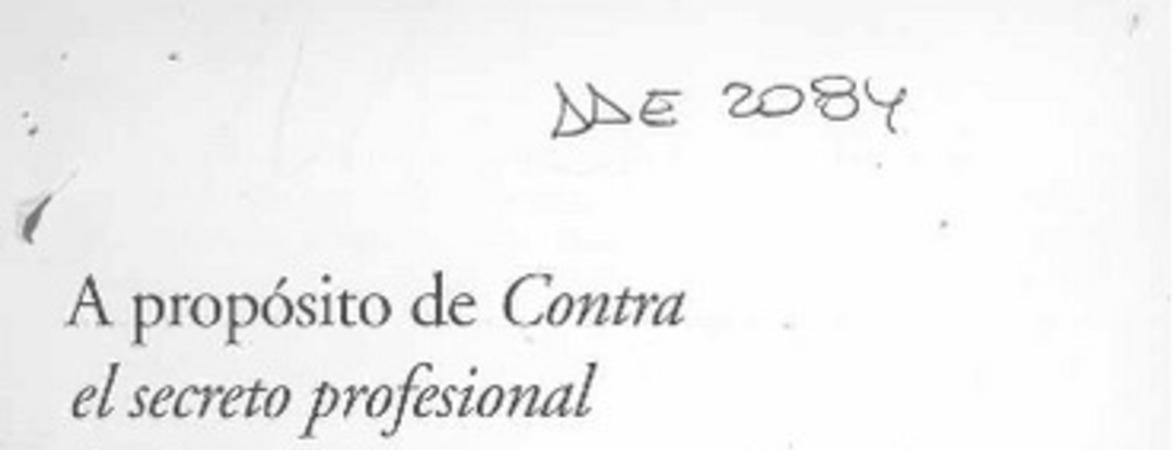 DDE 2084
A propósito de Contra
el secreto profesional